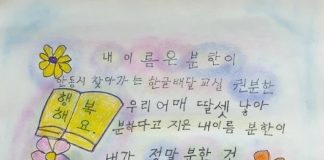 내 이름은 분한이
안동시 찾아가는 한글배달교실 권분한
행복
해요.
우리 어매 딸셋 낳아
분하다고 지은 내이름 분한이
내가 정말 분한 건